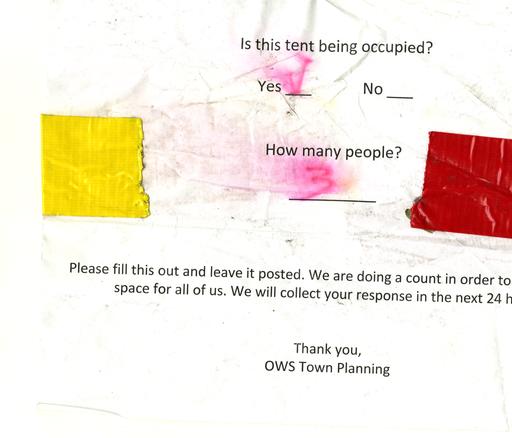 Is this tent being occupied?
Yes ___ No ___
How many people?
3
Please fill this out and leave it posted. We are doing a count in order to
space for all of us. We will collect your response in the next 24 h
Thank you,
OWS Town Planning